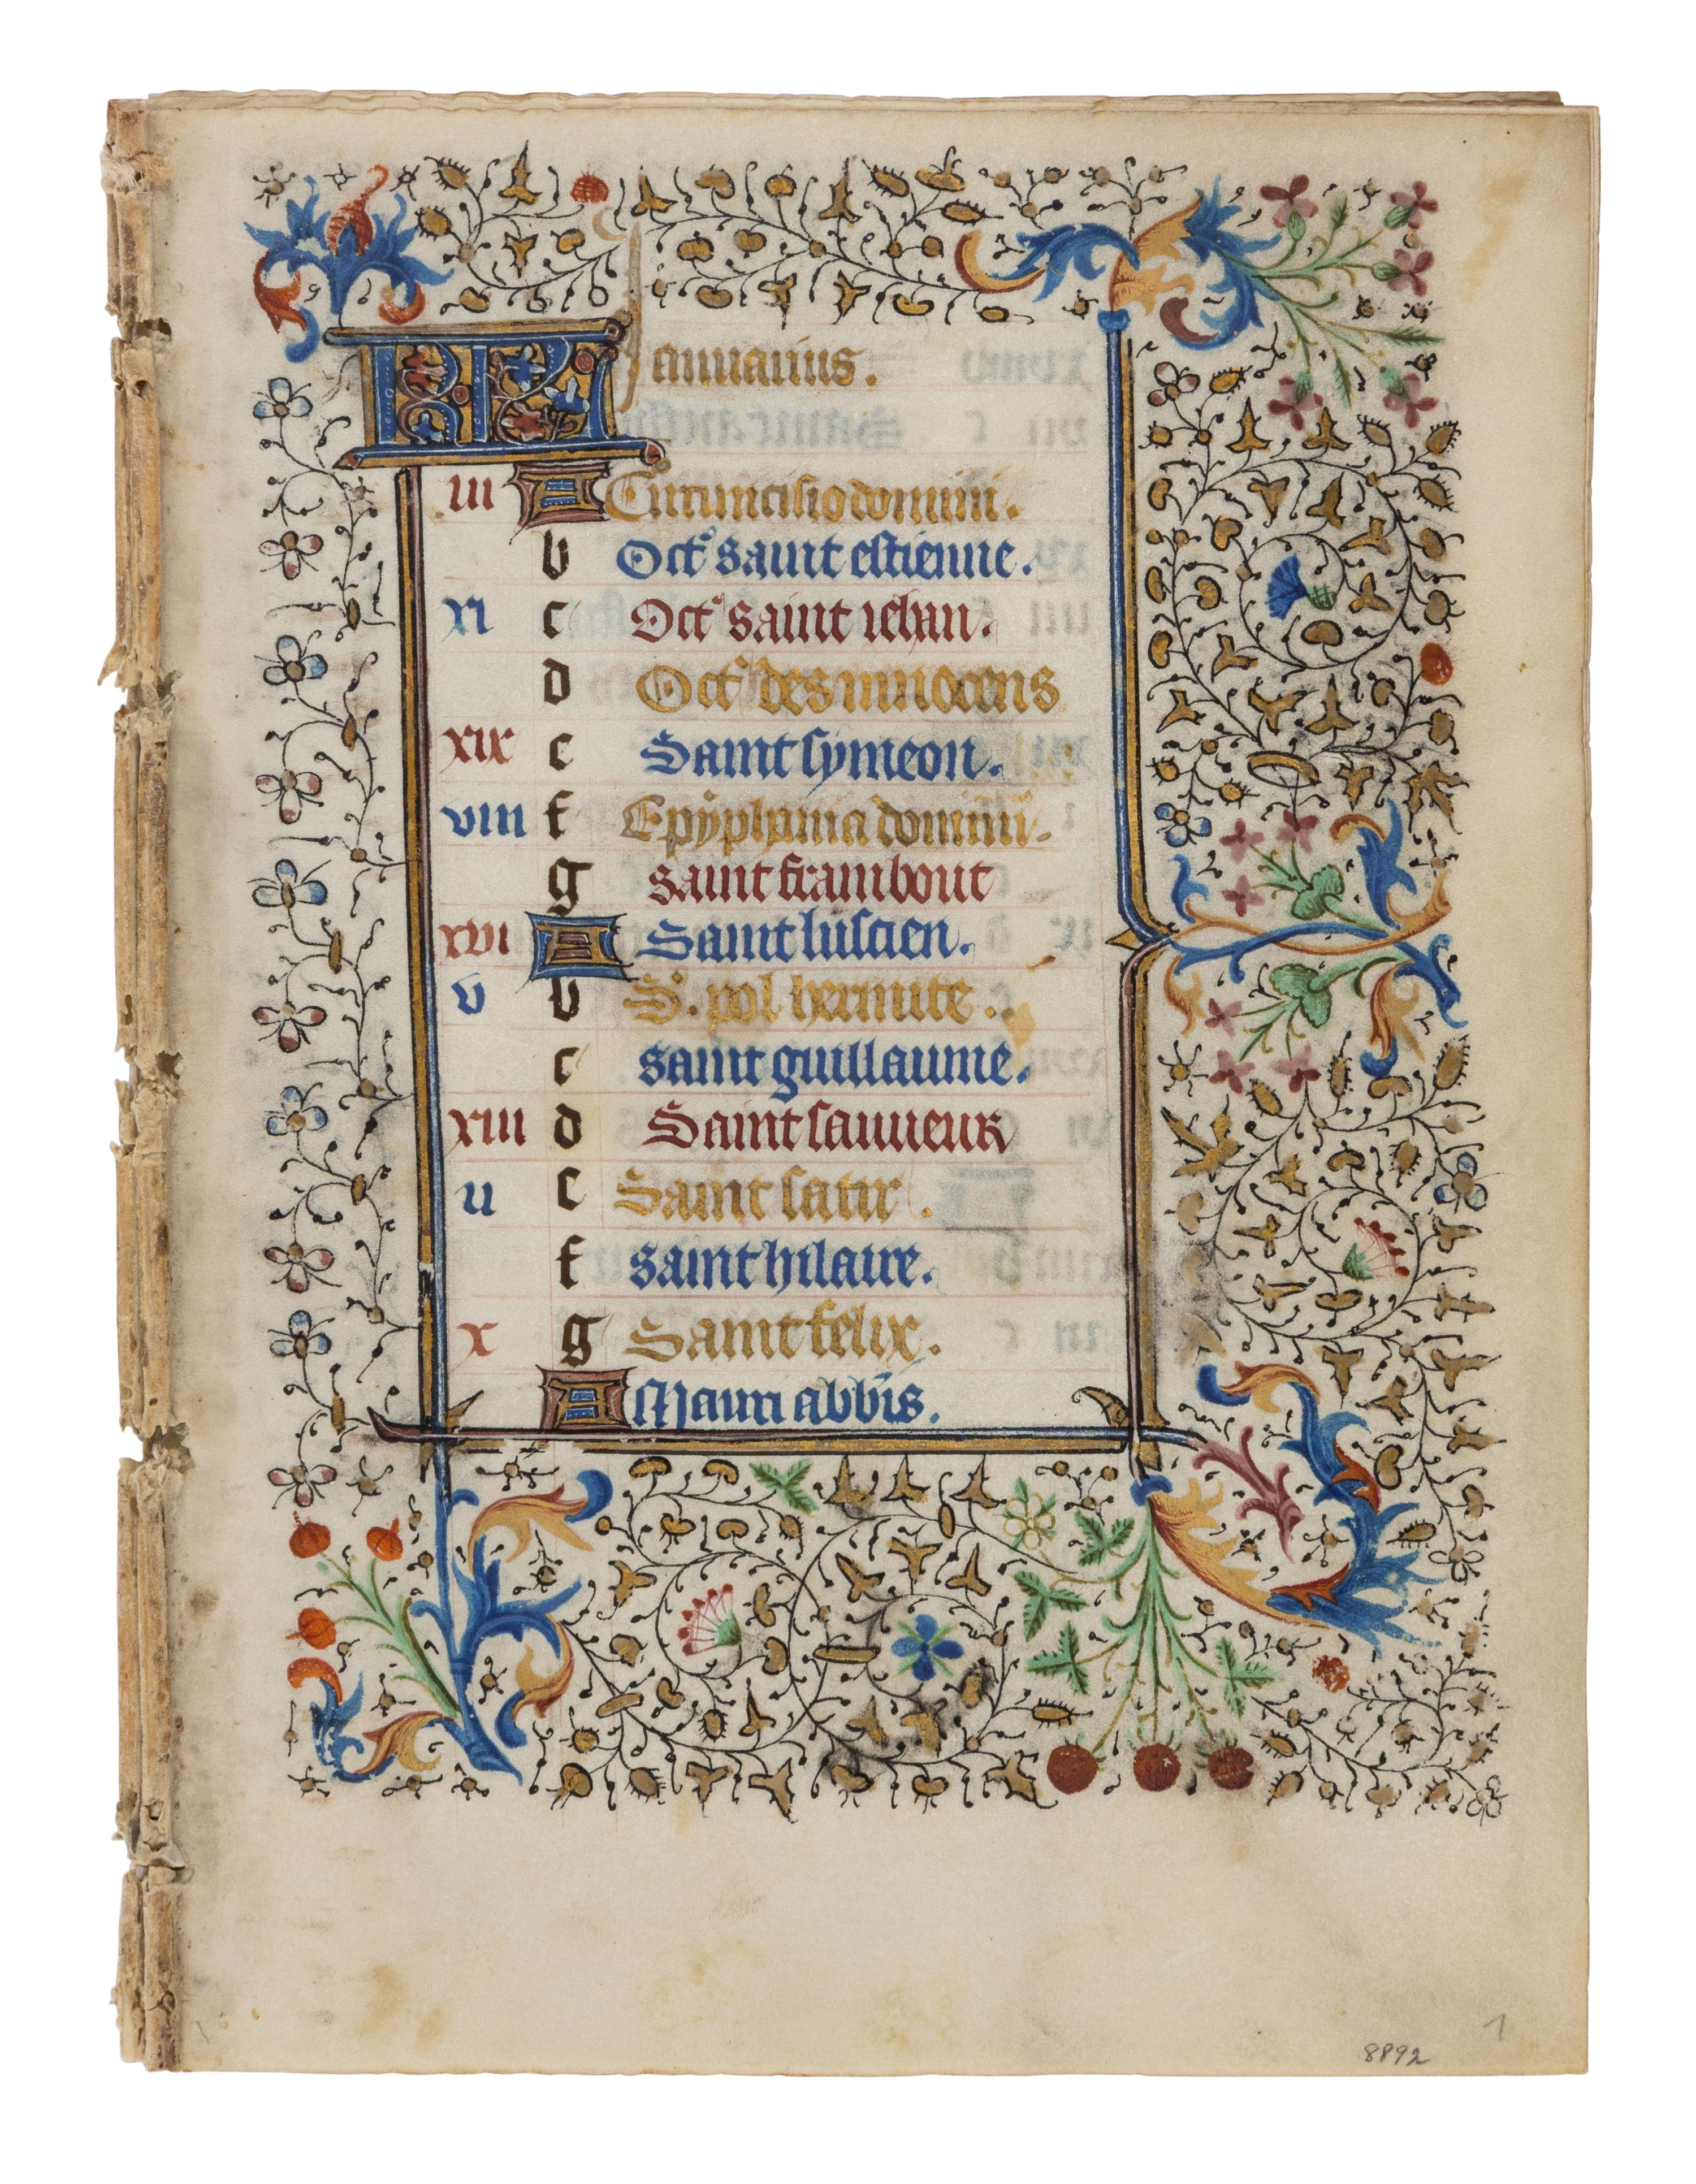 KL Januarius.
iii A Circuncisio domini.
b Oct saint estienne.
xi c Oct saint iehan.
d Oct des innocens
xix e Saint symeon.
viii f Epyphania domini.
g saint frambout
xvi A Saint luscien.
v b S. pol hermite.
c saint guillaume.
xiii d Saint sauueur
ii e Saint satir.
f saint hilaire.
x g Saint felix.
A Mauri abbis.
8892
1